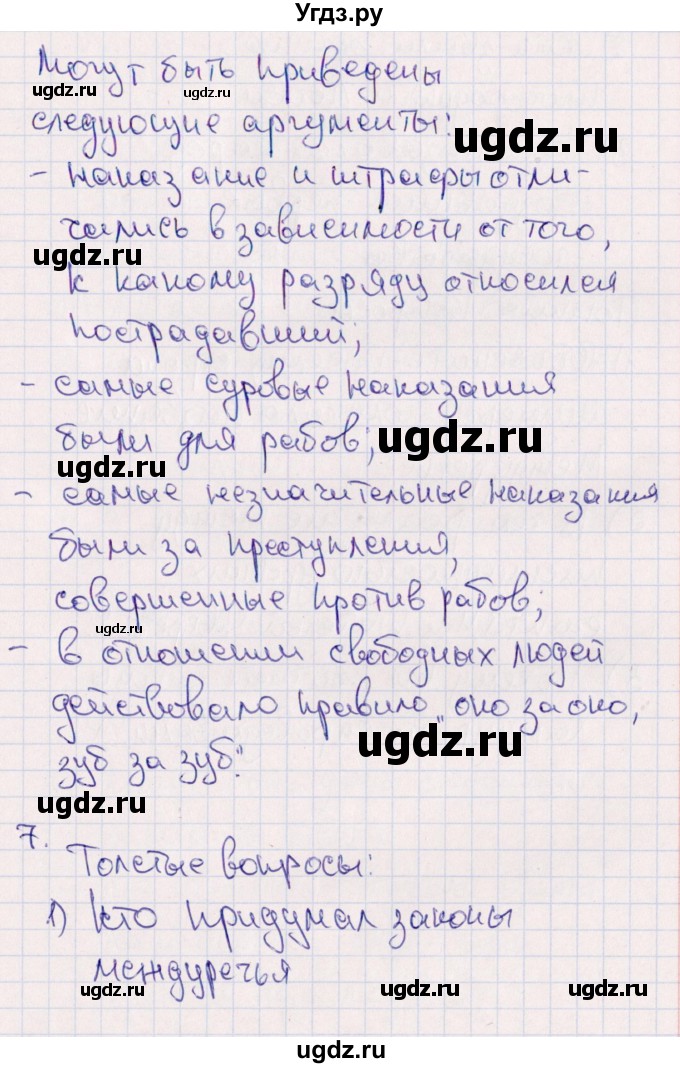 Угдз.ру
Могут быть приведены
следующие аргументы:
- наказание и штрафы отли-
чались в зависимости от того,
к какому разряду относился
пострадавший;
- самые суровые наказания
были для рабов;
- самые незначительные наказания
были за преступления,
совершенные против рабов;
- в отношении свободных людей
действовало правило „око за око,
зуб за зуб".
7.
Толстые вопросы:
1) Кто придумал законы
междуречья
ugdz.ru
ugdz.ru
ugdz.ru
ugdz.ru
ugdz.ru
ugdz.ru
ugdz.ru
ugdz.ru
ugdz.ru
ugdz.ru
ugdz.ru
ugdz.ru
ugdz.ru